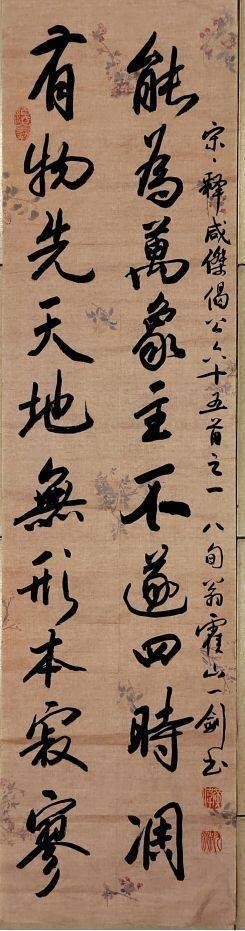 有物先天地無形本寂寥
能為萬象主不遂四時凋
宋、釋咸傑偈公六十五首之一 八旬翁霍山一劍書